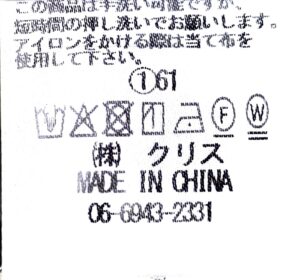 この商品は手洗い可能ですが、
短時間の押し洗いでお願いします。
アイロンをかける際は当て布を
使用して下さい。
①61
F W
(株) クリス
MADE IN CHINA
06-6943-2331